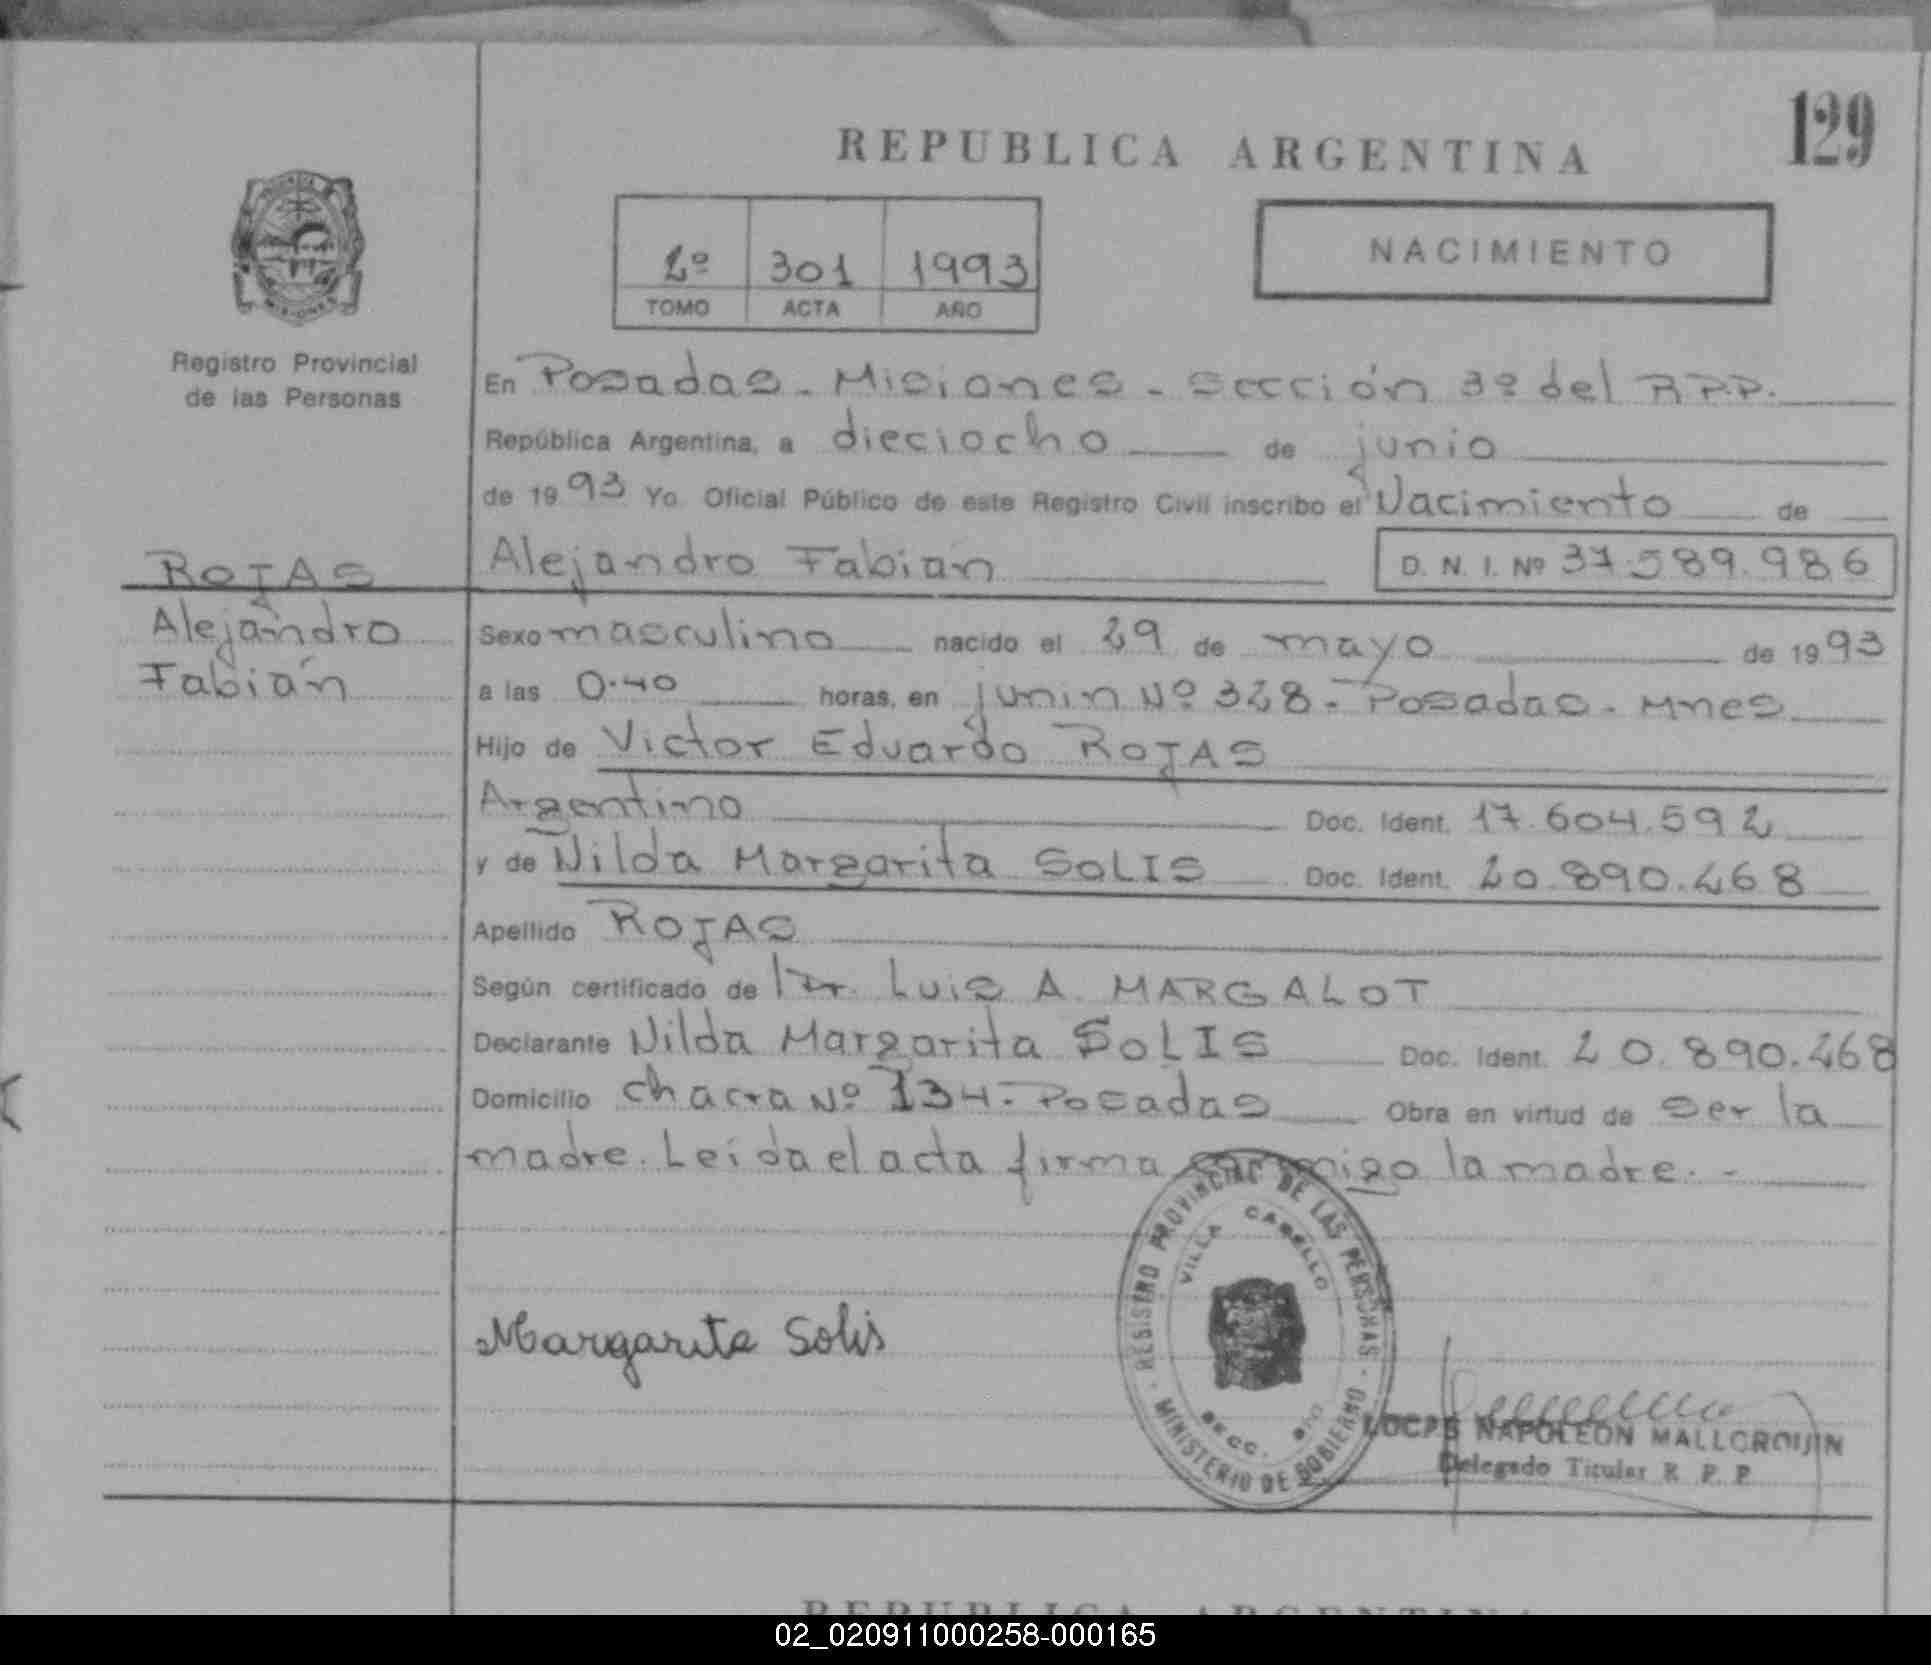 129
REPUBLICA ARGENTINA
2º 301 1993
TOMO ACTA AÑO
NACIMIENTO
Registro Provincial
de las Personas
En Posadas - Misiones - Sección 3º del R.P.P.
República Argentina, a dieciocho de junio
de 1993 Yo. Oficial Público de este Registro Civil inscribo el Nacimiento de
Alejandro Fabián D. N. I. Nº 37.589.986
ROJAS
Alejandro
Fabián
Sexo masculino nacido el 29 de mayo de 1993
a las 0.40 horas, en junín Nº 328 - Posadas - Mnes
Hijo de Victor Eduardo ROJAS
Argentino Doc. Ident. 17.604.592
y de Nilda Margarita SOLIS Doc. Ident. 20.890.268
Apellido ROJAS
Según certificado de Dr. Luis A. MARGALOT
Declarante Nilda Margarita SOLIS Doc. Ident. 20.890.268
Domicilio Chacra Nº 134 - Posadas Obra en virtud de ser la
madre. Leída el acta firma conmigo la madre. -
REGISTRO PROVINCIAL DE LAS PERSONAS
VILLA CABELLO
SECC.
MINISTERIO DE GOBIERNO
Margarita Solis
NAPOLEON
Delegado Titular R. P. P.
REPUBLICA ARGENTINA
02_020911000258-000165